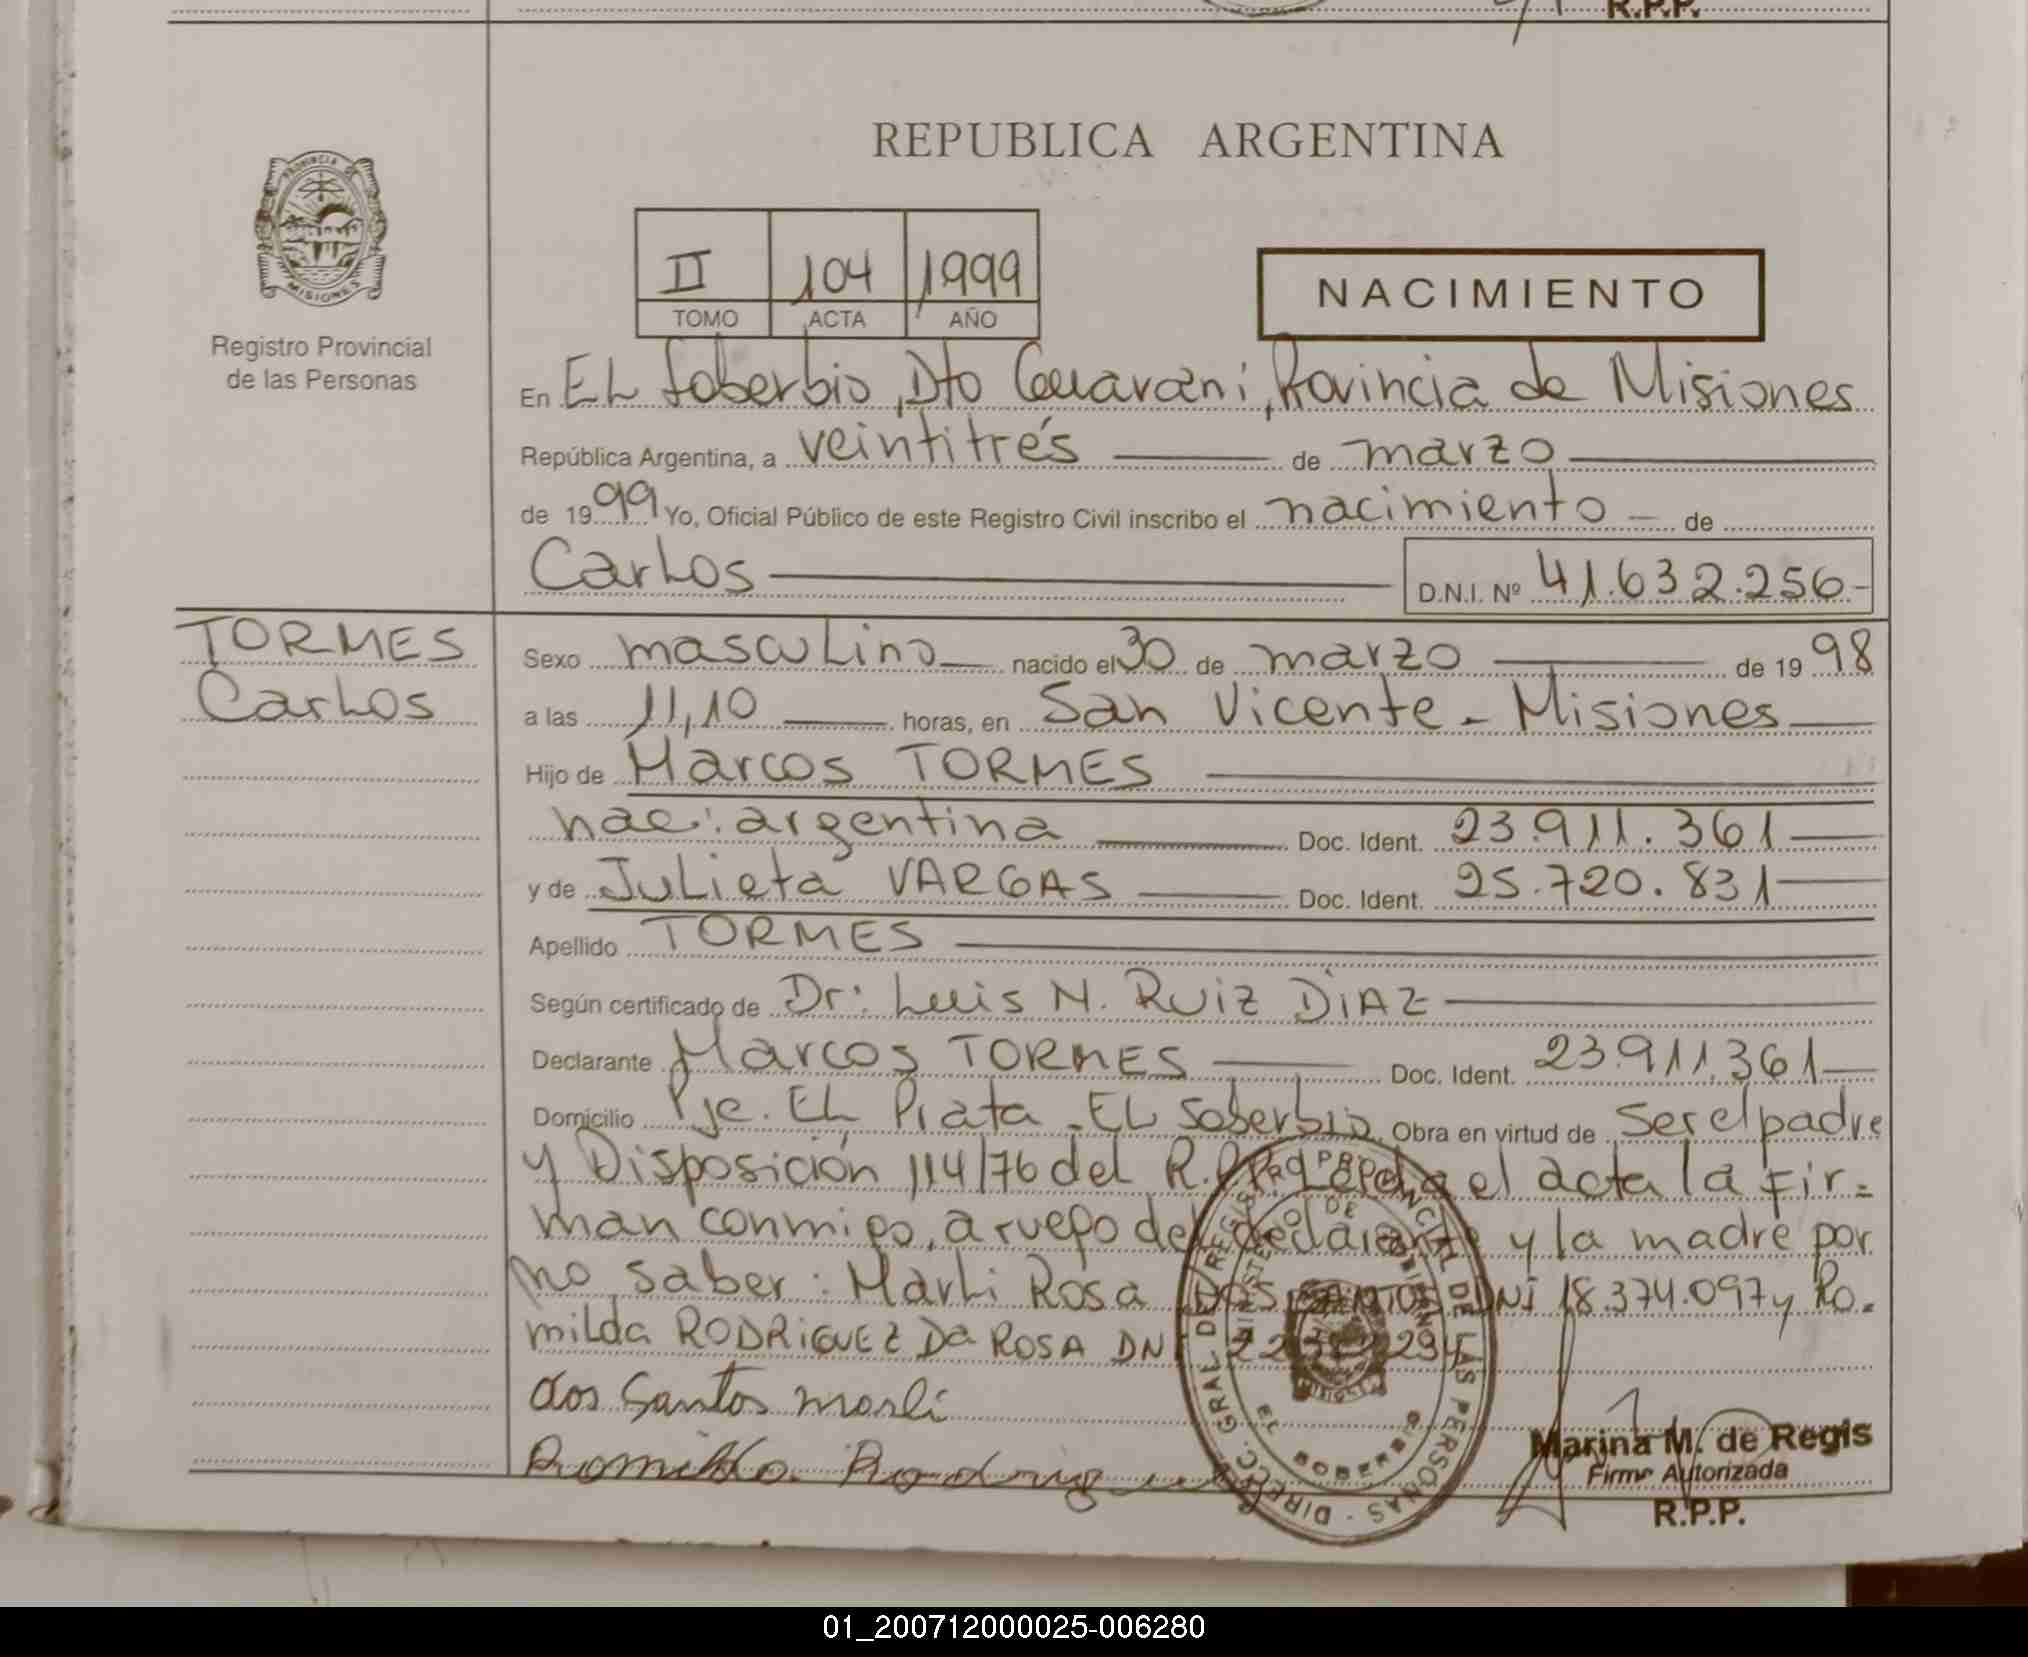 R.P.P.
REPUBLICA ARGENTINA
PROVINCIA DE
MISIONES
Registro Provincial
de las Personas
II 104 1999
TOMO ACTA AÑO
NACIMIENTO
En EL Soberbio, Dto Guaraní, Provincia de Misiones
República Argentina, a veintitrés de marzo
de 1999 Yo, Oficial Público de este Registro Civil inscribo el nacimiento - de
Carlos D.N.I. Nº 41.632.256-
TORMES
Carlos
Sexo masculino nacido el 30 de marzo de 1998
a las 11,10 horas, en San Vicente - Misiones
Hijo de Marcos TORMES
nac: argentina Doc. Ident. 23.911.361
y de Julieta VARGAS Doc. Ident. 25.720.831
Apellido TORMES
Según certificado de Dr: Luis N. RUIZ DIAZ
Declarante Marcos TORMES Doc. Ident. 23.911.361
Domicilio Pje. EL Prata - EL Soberbio Obra en virtud de ser el padre
y Disposición 114/76 del R.P.P. Leida el acta la fir=
man conmigo, a ruego del declarante y la madre por
no saber: Marli Rosa DOS SANTOS DNI 18.374.097 y Ro=
milda RODRIGUEZ Da ROSA DNI
dos Santos Marli
Romilda Rodriguez
DIRECC. GRAL DEL REGISTRO PROVINCIAL DE LAS PERSONAS
MINISTERIO DE GOBIERNO
Marina M. de Regis
Firma Autorizada
R.P.P.
01_200712000025-006280